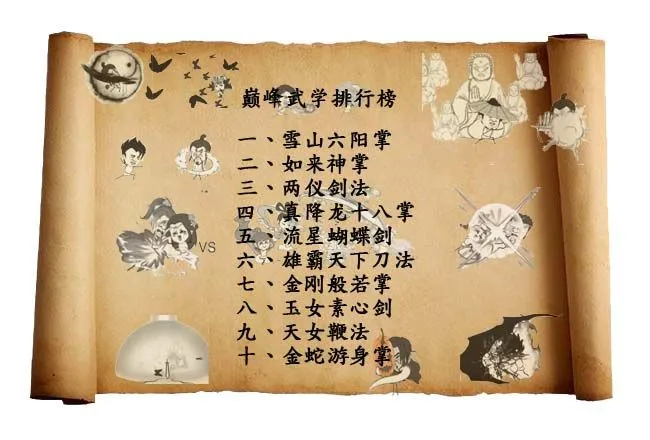 巅峰武学排行榜
一、雪山六阳掌
二、如来神掌
三、两仪剑法
四、真降龙十八掌
五、流星蝴蝶剑
六、雄霸天下刀法
七、金刚般若掌
八、玉女素心剑
九、天女鞭法
十、金蛇游身掌
VS